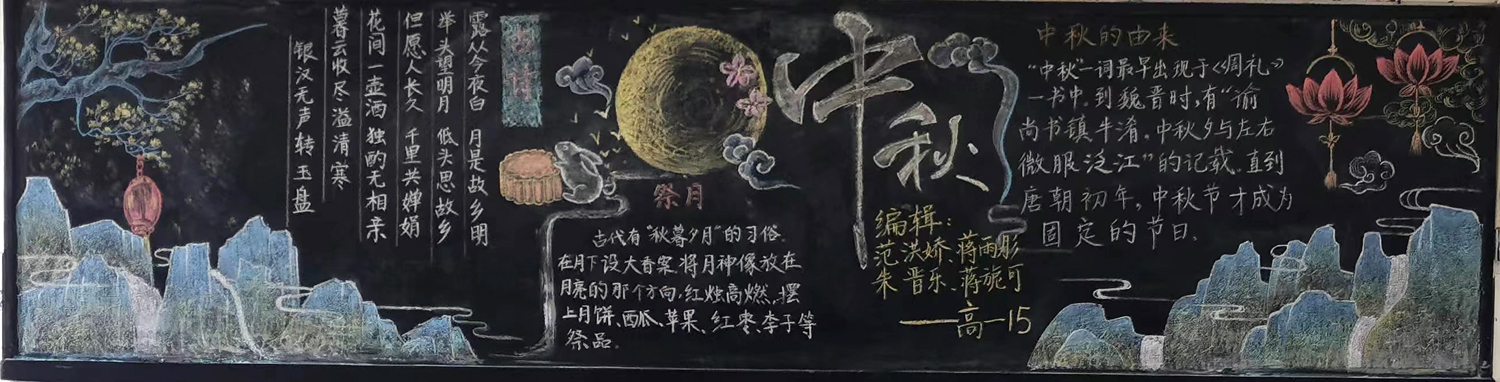 露从今夜白 月是故乡明
举头望明月 低头思故乡
但愿人长久 千里共婵娟
花间一壶酒 独酌无相亲
暮云收尽溢清寒
银汉无声转玉盘
祭月
古代有“秋暮夕月”的习俗。
在月下设大香案,将月神像放在
月亮的那个方向,红烛高燃,摆
上月饼、西瓜、苹果、红枣、李子等
祭品。
中秋
编辑：
范洪娇、蒋雨彤
朱晋乐、蒋旎可
——高一15
中秋的由来
“中秋”一词最早出现于《周礼》
一书中.到魏晋时,有“谕
尚书镇牛淆,中秋夕与左右
微服泛江”的记载.直到
唐朝初年,中秋节才成为
固定的节日.